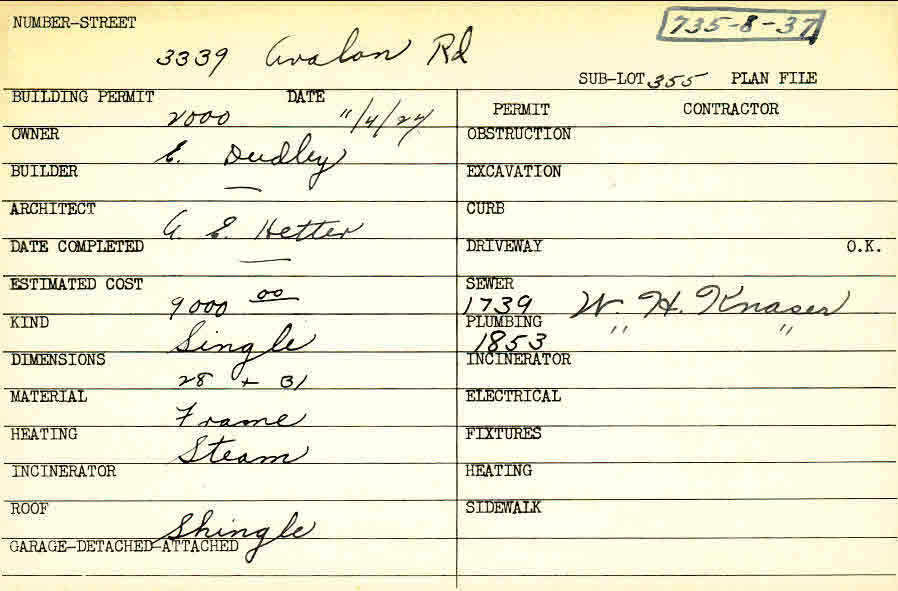 NUMBER-STREET
735-8-37
3339 Avalon Rd
SUB-LOT 355 PLAN FILE
BUILDING PERMIT 2000 DATE 11/4/24
PERMIT CONTRACTOR
OWNER E. Dudley
OBSTRUCTION
BUILDER —
EXCAVATION
ARCHITECT A. E. Hetter
CURB
DATE COMPLETED —
DRIVEWAY O.K.
ESTIMATED COST 9000 00
SEWER 1739 W. H. Knaser
KIND Single
PLUMBING 1853 " "
DIMENSIONS 28 + 31
INCINERATOR
MATERIAL Frame
ELECTRICAL
HEATING Steam
FIXTURES
INCINERATOR
HEATING
ROOF Shingle
SIDEWALK
GARAGE-DETACHED-ATTACHED